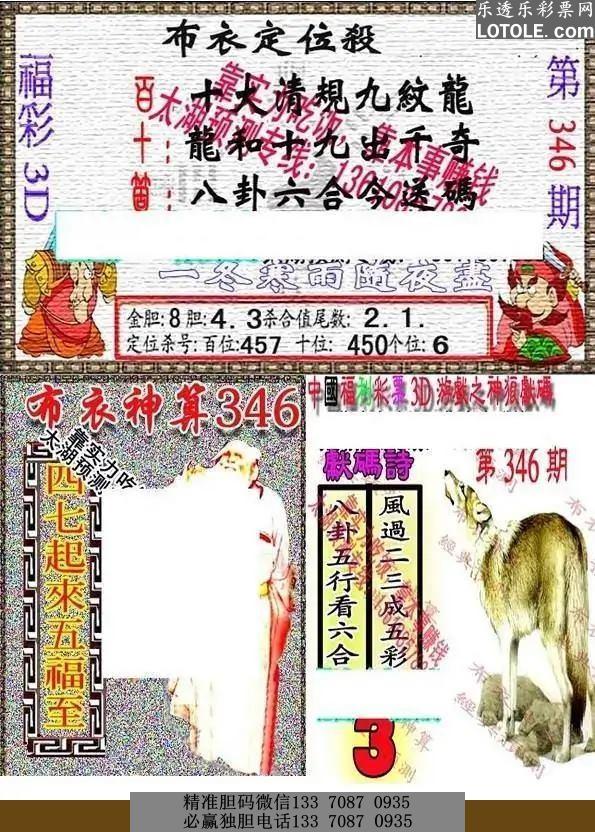 乐透乐彩票网
LOTOLE.COM
布衣定位殺
福彩3D
第346期
百十
十大清規九紋龍
龍和十九出千奇
八卦六合今送碼
一冬寒雨隨夜盡
金胆:8胆:4.3杀合值尾数:2.1.
定位杀号:百位:457 十位:450个位:6
布衣神算346
靠实力吃
太湖预测
四七起來五福至
中國福利彩票3D
獻碼詩
第346期
風過二三成五彩
八卦五行看六合
3
精准胆码微信133 7087 0935
必赢独胆电话133 7087 0935